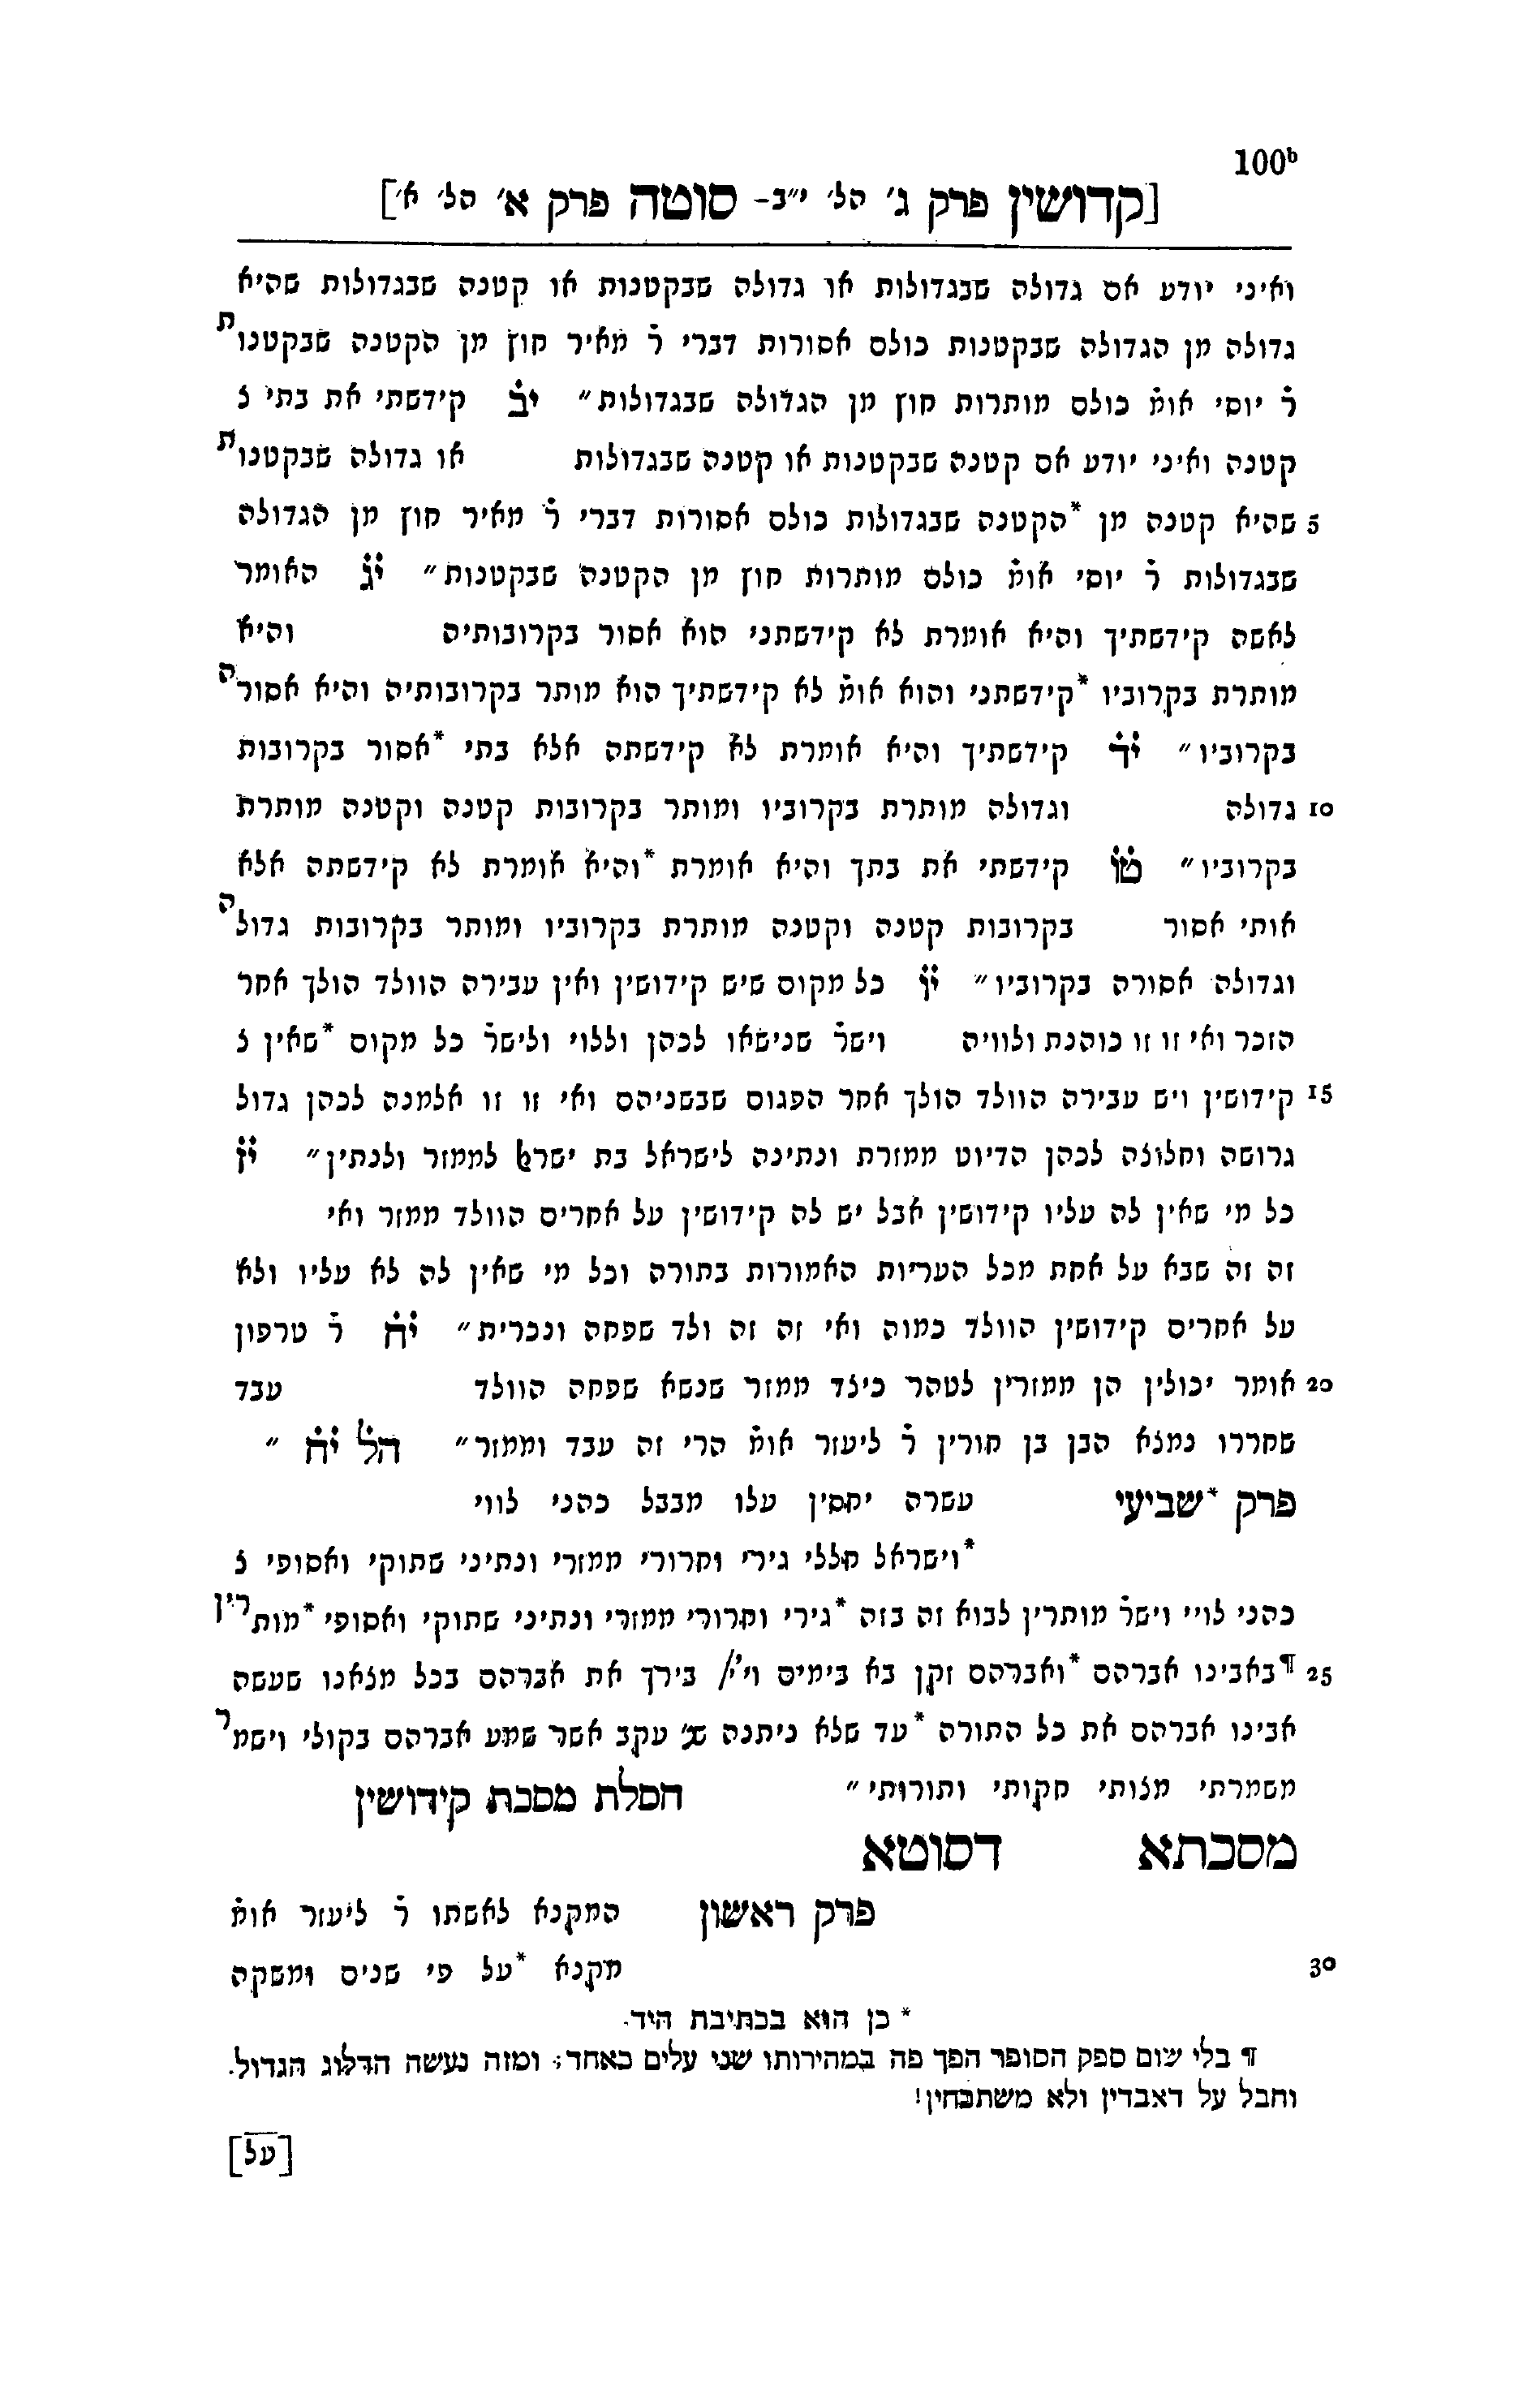 100b
[קדושין פרק ג׳ הל׳ י״ב- סוטה פרק א׳ הל׳ א׳]
ואיני יודע אם גדולה שבגדולות או גדולה שבקטנות או קטנה שבגדולות שהיא
גדולה מן הגדולה שבקטנות כולם אסורות דברי ר̇ מאיר חוץ מן הקטנה שבקטנות
ר̇ יוסי אומ̇ כולם מותרות חוץ מן הגדולה שבגדולות״ י̇ב̇ קידשתי את בתי ל
קטנה ואיני יודע אם קטנה שבקטנות או קטנה שבגדולות או גדולה שבקטנות
5 שהיא קטנה מן *הקטנה שבגדולות כולם אסורות דברי ר̇ מאיר חוץ מן הגדולה
שבגדולות ר̇ יוסי אומ̇ כולם מותרות חוץ מן הקטנה שבקטנות״ י̇ג̇ האומר
לאשה קידשתיך והיא אומרת לא קידשתני הוא אסור בקרובותיה והיא
מותרת בקרוביו *קידשתני והוא אומ̇ לא קידשתיך הוא מותר בקרובותיה והיא אסורה
בקרוביו״ י̇ד̇ קידשתיך והיא אומרת לא קידשתה אלא בתי *אסור בקרובות
10 גדולה וגדולה מותרת בקרוביו ומותר בקרובות קטנה וקטנה מותרת
בקרוביו״ ט̇ו̇ קידשתי את בתך והיא אומרת *והיא אומרת לא קידשתה אלא
אותי אסור בקרובות קטנה וקטנה מותרת בקרוביו ומותר בקרובות גדולה
וגדולה אסורה בקרוביו״ י̇ו̇ כל מקום שיש קידושין ואין עבירה הוולד הולך אחר
הזכר ואי זו זו כוהנת ולוויה וישר̇ שנישאו לכהן וללוי ולישר̇ כל מקום *שאין ל
15 קידושין ויש עבירה הוולד הולך אחר הפגום שבשניהם ואי זו זו אלמנה לכהן גדול
גרושה וחלוצה לכהן הדיוט ממזרת ונתינה לישראל בת ישרﭏ לממזר ולנתין״ י̇ז̇
כל מי שאין לה עליו קידושין אבל יש לה קידושין על אחרים הוולד ממזר ואי
זה זה שבא על אחת מכל העריות האמורות בתורה וכל מי שאין לה לא עליו ולא
על אחרים קידושין הוולד כמוה ואי זה זה ולד שפחה ונכרית״ י̇ח̇ ר̇ טרפון
20 אומר יכולין הן ממזרין לטהר כיצד ממזר שנשא שפחה הוולד עבד
שחררו נמצא הבן בן חורין ר̇ ליעזר אומ̇ הרי זה עבד וממזר״ הל̇ י̇ח̇ ״
פרק *שביעי עשרה יחסין עלו מבבל כהני לווי
*וישראל חללי גירי וחרורי ממזרי ונתיני שתוקי ואסופי ל
כהני לויי וישר̇ מותרין לבוא זה בזה *גירי וחרורי ממזרי ונתיני שתוקי ואסופי *מותרין
25 ¶באבינו אברהם *ואברהם זקן בא בימים וי׳י׳/ בירך את אברהם בכל מצאנו שעשה
אבינו אברהם את כל התורה *עד שלא ניתנה שנ׳ עקב אשר שמע אברהם בקולי וישמר
משמרתי מצותי חקותי ותורותי״ חסלת מסכת קידושין
מסכתא דסוטא
פרק ראשון המקנא לאשתו ר̇ ליעזר אומ̇
30 מקנא *על פי שנים ומשקה
* כן הוא בכתיבת היד.
¶ בלי שום ספק הסופר הפך פה במהירותו שני עלים כאחד; ומזה נעשה הדלוג הגדול.
וחבל על דאבדין ולא משתכחין!
[על]